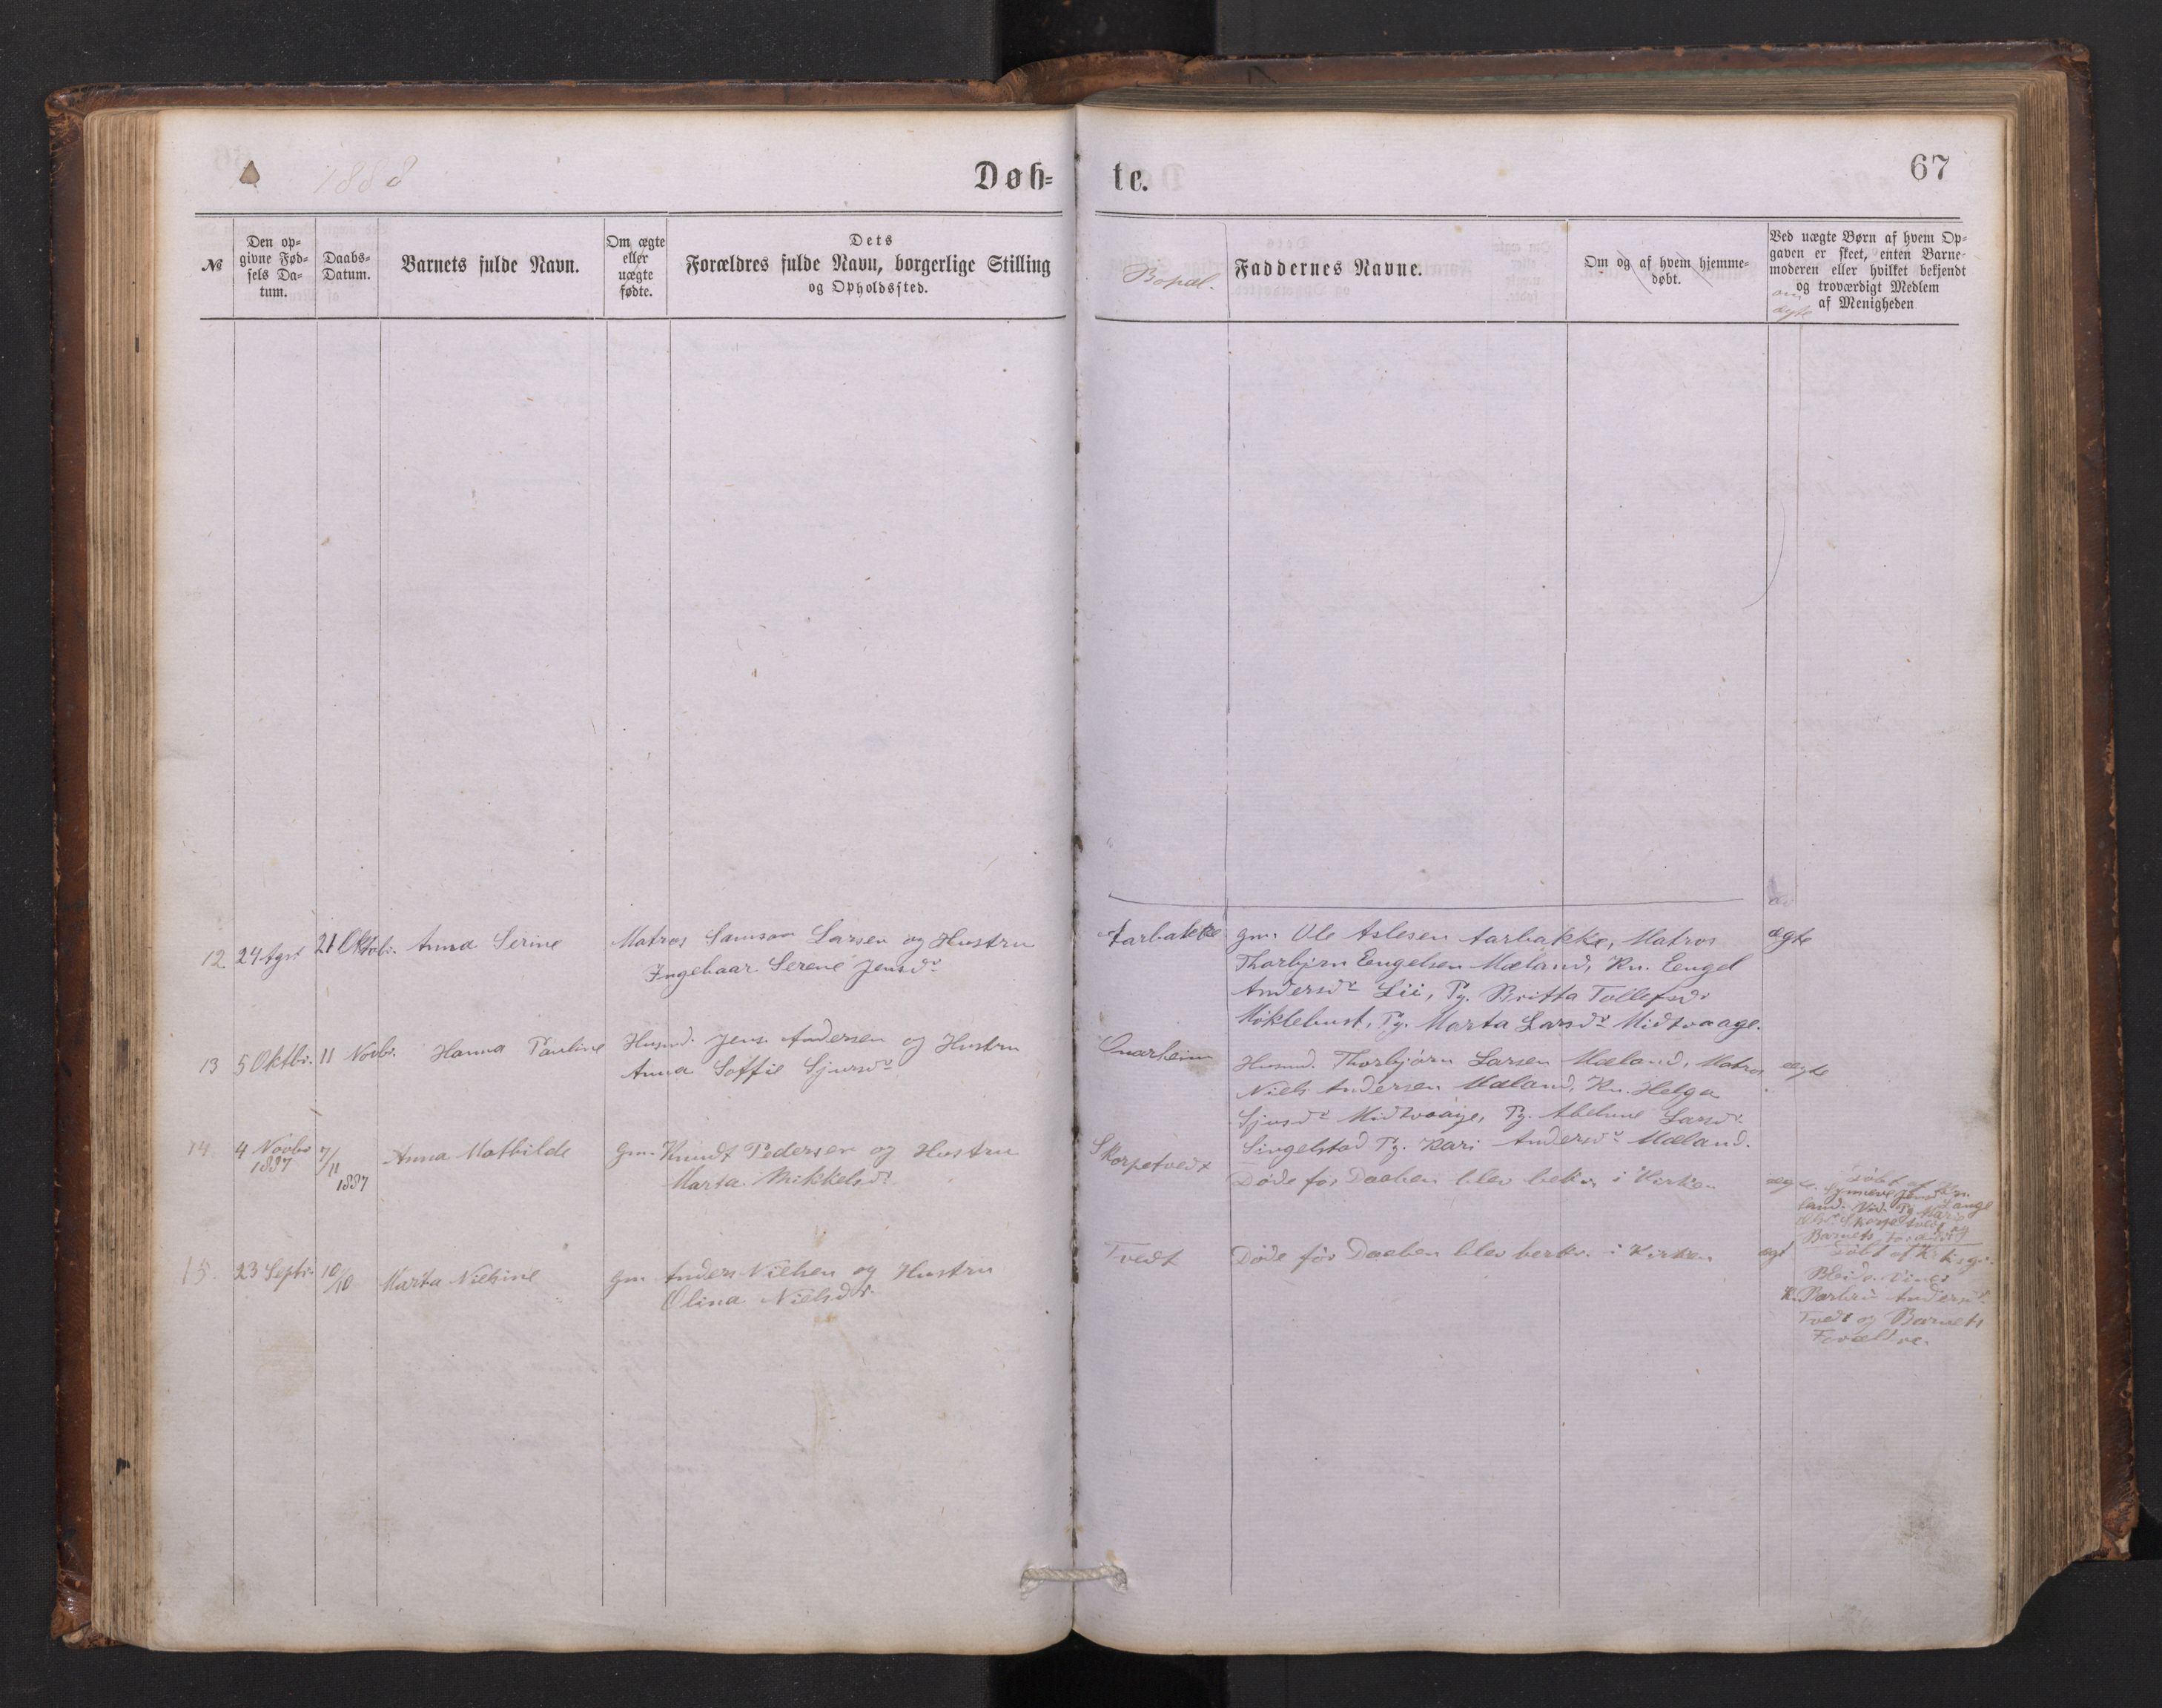 1888
Døb=
te.
67
№
Den op=
givne Fød=
sels Da=
tum.
Daabs=
Datum.
Barnets fulde Navn.
Om ægte
eller
uægte
fødte.
Dets
Forældres fulde Navn, borgerlige Stilling
og Opholdssted.
Bopæl.
Faddernes Navne.
Om og af hvem hjemme=
døbt.
Ved uægte Børn af hvem Op=
gaven er skeet, enten Barne=
moderen eller hvilket bekjendt
og troværdigt Medlem
af Menigheden
om
ægte
12 24 Agst 21 Oktobr. Anna Serine Matros Samson Larsen og Hustru
Ingebaar Serene Jensdr
Aarbakke gm. Ole Aslesen Aarbakke, Matros ægte
Thorbjrn Eengelsen Mæland, Kn. Eengel
Andersdr Lii, Pg. Britta Tollefsdr
Møklebust, Pg. Marta Larsdr Midtvaage.
13 5 Oktbr. 11 Novbr. Hanna Pauline Husmd. Jens Andersen og Hustru
Anna Soffie Sjursdr
Onarheim Husmd. Thorbjørn Larsen Mæland, Matros ægte
Niels Andersen Mæland, Kn. Helga
Sjursdr Midtvaage, Pg. Abelune Larsdr
Singelstad Pg. Kari Andersdr Mæland.
14 4 Novbr 7/11 Anna Mathilde gm. Knudt Pedersen og Hustru
1887 1887 Marta Mikkelsdr
Skorpetvedt Døde før Daaben blev bekr. i Kirken ægte Døbt af
Barnets Forældre
15. 23 Septr. 10/10 Marta Nielsine gm Anders Nielsen og Hustru
Olina Nielsdr.
Tvedt Døde før Daaben blev bekr. i Kirken ægt Døbt af Kirkesgr.
K. Barbru Andersdr.
Tvedt og Barnets
Forældre.